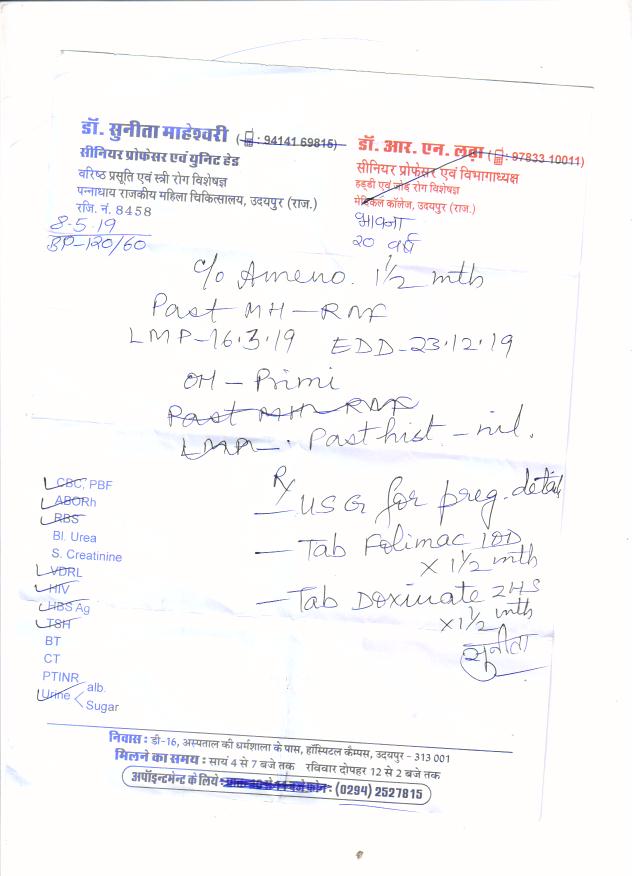 डॉ. सुनीता माहेश्वरी (: 94141 69815)
सीनियर प्रोफेसर एवं यूनिट हेड
वरिष्ठ प्रसूति एवं स्त्री रोग विशेषज्ञ
पन्नाधाय राजकीय महिला चिकित्सालय, उदयपुर (राज.)
रजि. नं. 8458
डॉ. आर. एन. लढ़ा (: 97833 10011)
सीनियर प्रोफेसर एवं विभागाध्यक्ष
हड्डी एवं जोड़ रोग विशेषज्ञ
मेडिकल कॉलेज, उदयपुर (राज.)
8-5-19
BP-120/60
भावना
20 वर्ष
c/o Ameno. 1 1/2 mth
Past MH - RNF
LMP-16.3.19 EDD-23.12.19
OH - Primi
Past MH RNF
LMP - Past hist. - nil.
Rx
- USG for preg. detail
- Tab Folimac 1OD
x 1 1/2 mth
- Tab Doxinate 2HS
x 1 1/2 mth
सुनीता
CBC, PBF
ABORh
RBS
Bl. Urea
S. Creatinine
VDRL
HIV
HBS Ag
TSH
BT
CT
PTINR
Urine < alb.
Sugar
निवास : डी-16, अस्पताल की धर्मशाला के पास, हॉस्पिटल कैम्पस, उदयपुर - 313 001
मिलने का समय : सायं 4 से 7 बजे तक रविवार दोपहर 12 से 2 बजे तक
अपॉइन्टमेन्ट के लिये फोन : (0294) 2527815